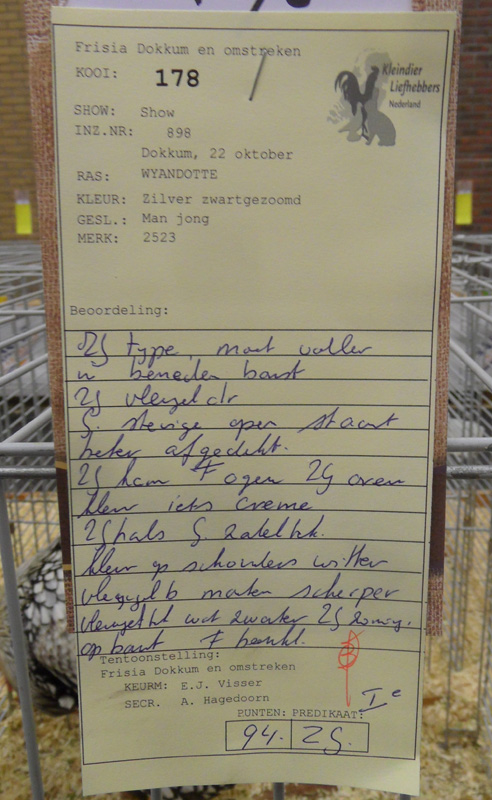 Frisia Dokkum en omstreken
KOOI: 178
Kleindier
Liefhebbers
Nederland
SHOW: Show
INZ.NR: 898
Dokkum, 22 oktober
RAS: WYANDOTTE
KLEUR: Zilver zwartgezoomd
GESL.: Man jong
MERK: 2523
Beoordeling:
ZG type, moet voller
in beneden borst
ZG vleugeldr
G. stevige open staart
beter afgedekt.
ZG kam F ogen ZG oren
kleur iets creme
ZG hals G zadeltek.
kleur op schouders witter
vleugelb moeten scherper
vleugeltek wat zwaarder ZG zoming.
op borst F benkl.
Tentoonstelling:
Frisia Dokkum en omstreken
KEURM: E.J. Visser
SECR. A. Hagedoorn
Ie
PUNTEN: PREDIKAAT:
94. ZG.